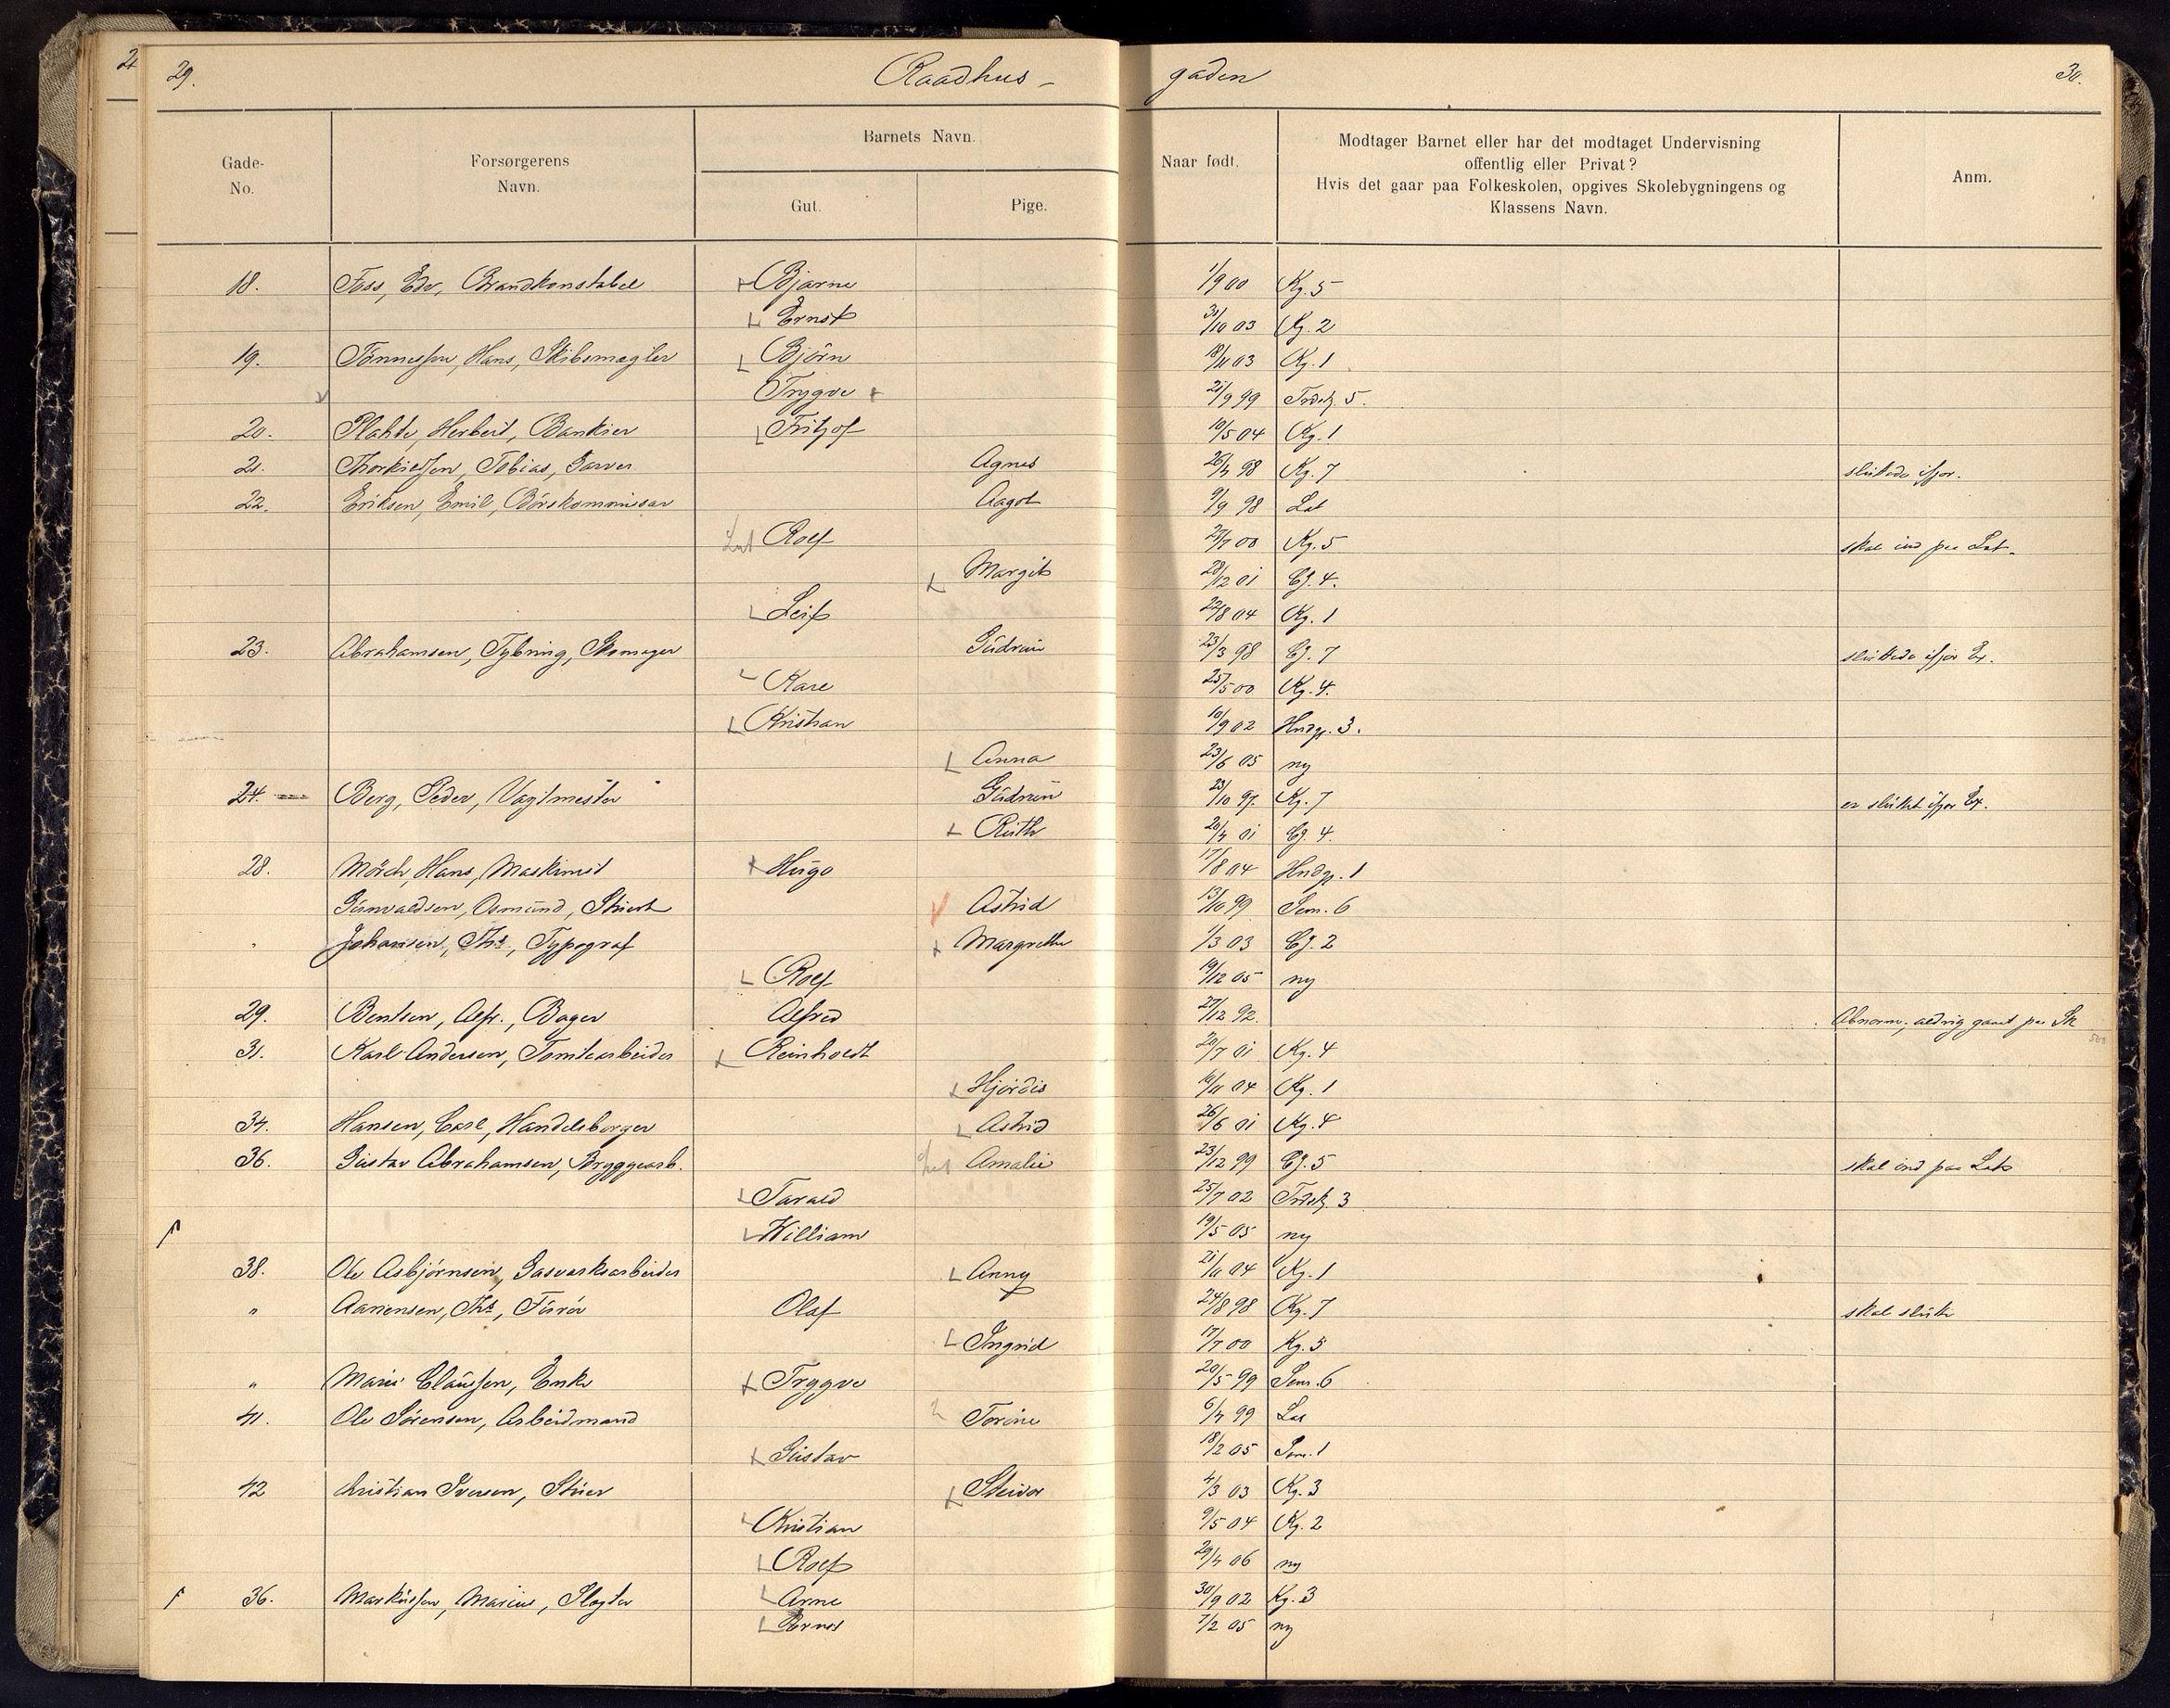 29. Raadhus- gaden 30.
Gade-No. Forsørgerens Navn. Barnets Navn. Gut. Pige. Naar født. Modtager Barnet eller har det modtaget Undervisning offentlig eller Privat? Hvis det gaar paa Folkeskolen, opgives Skolebygningens og Klassens Navn. Anm.
18. Foss, Edv, Brandkonstabel Bjarne 1/9 00 Kg. 5
Ernst 31/10 03 Kg. 2
19. Tönnessen, Hans, Skibsmægler Björn 18/11 03 Kg. 1
Trygve 21/9 99 Trdsk. 5.
20. Plahte, Herbert, Bankier Fritjof 10/5 04 Kg. 1
21. Thorkildsen, Tobias, Garver Agnes 26/4 98 Kg. 7 sluttede ifjor.
22. Eriksen, Emil, Börskommissær Aagot 9/9 98 Lat
Lat Rolf 27/7 00 Kg. 5 skal ind paa Lat.
Margit 28/12 01 Bj. 4.
Leif 22/8 04 Kg. 1
23. Abrahamsen, Tybring, Skomager Gudrun 23/3 98 Bj. 7 sluttede ifjor Ex.
Kare 25/5 00 Kg. 4.
Kristian 10/9 02 Hndg. 3.
Anna 23/6 05 ny
24. Berg, Peder, Vagtmester Gudrun 23/10 97. Kg. 7 er sluttet ifjor Ex.
Ruth 20/4 01 Bj. 4.
28. Mörch, Hans, Maskinist Hugo 17/8 04 Hndg. 1
Gunvaldsen, Osmund, Stuert Astrid 13/10 99 Sem. 6
" Johansen, Ths, Typograf Margrethe 1/3 03 Bj. 2
Rolf 19/12 05 ny
29. Bentsen, Alfr., Bager Alfred 27/12 92. Abnorm, aldrig gaaet paa Sk
31. Karl Andersen, Tomtearbeider Reinholdt 20/7 01 Kg. 4
Hjördis 19/11 04 Kg. 1
34. Hansen, Carl, Handelsborger Astrid 26/6 01 Kg. 4
36. Gustav Abrahamsen, Bryggearb. Lat Amalie 23/12 99 Bj. 5 skal ind paa Lat
Tarald 25/7 02 Trdsk. 3
William 19/5 05 ny
38. Ole Asbjörnsen, Gasverksarbeider Anny 21/11 04 Kg. 1
" Aanensen, Ths, Förer Olaf 24/8 98 Kg. 7 skal slutte
Ingrid 17/7 00 Kg. 5
" Marie Claussen, Enke Trygve 20/5 99 Sem. 6
41. Ole Sörensen, Arbeidmand Torine 6/4 99 Lat
Gustav 18/2 05 Sem. 1
42 Kristian Iversen, Stuer Steivor 4/3 03 Kg. 3
Kristian 9/5 04 Kg. 2
Rolf 29/4 06 ny
36. Markussen, Marius, Slagter Arne 30/9 02 Kg. 3
Ernst 7/2 05 ny